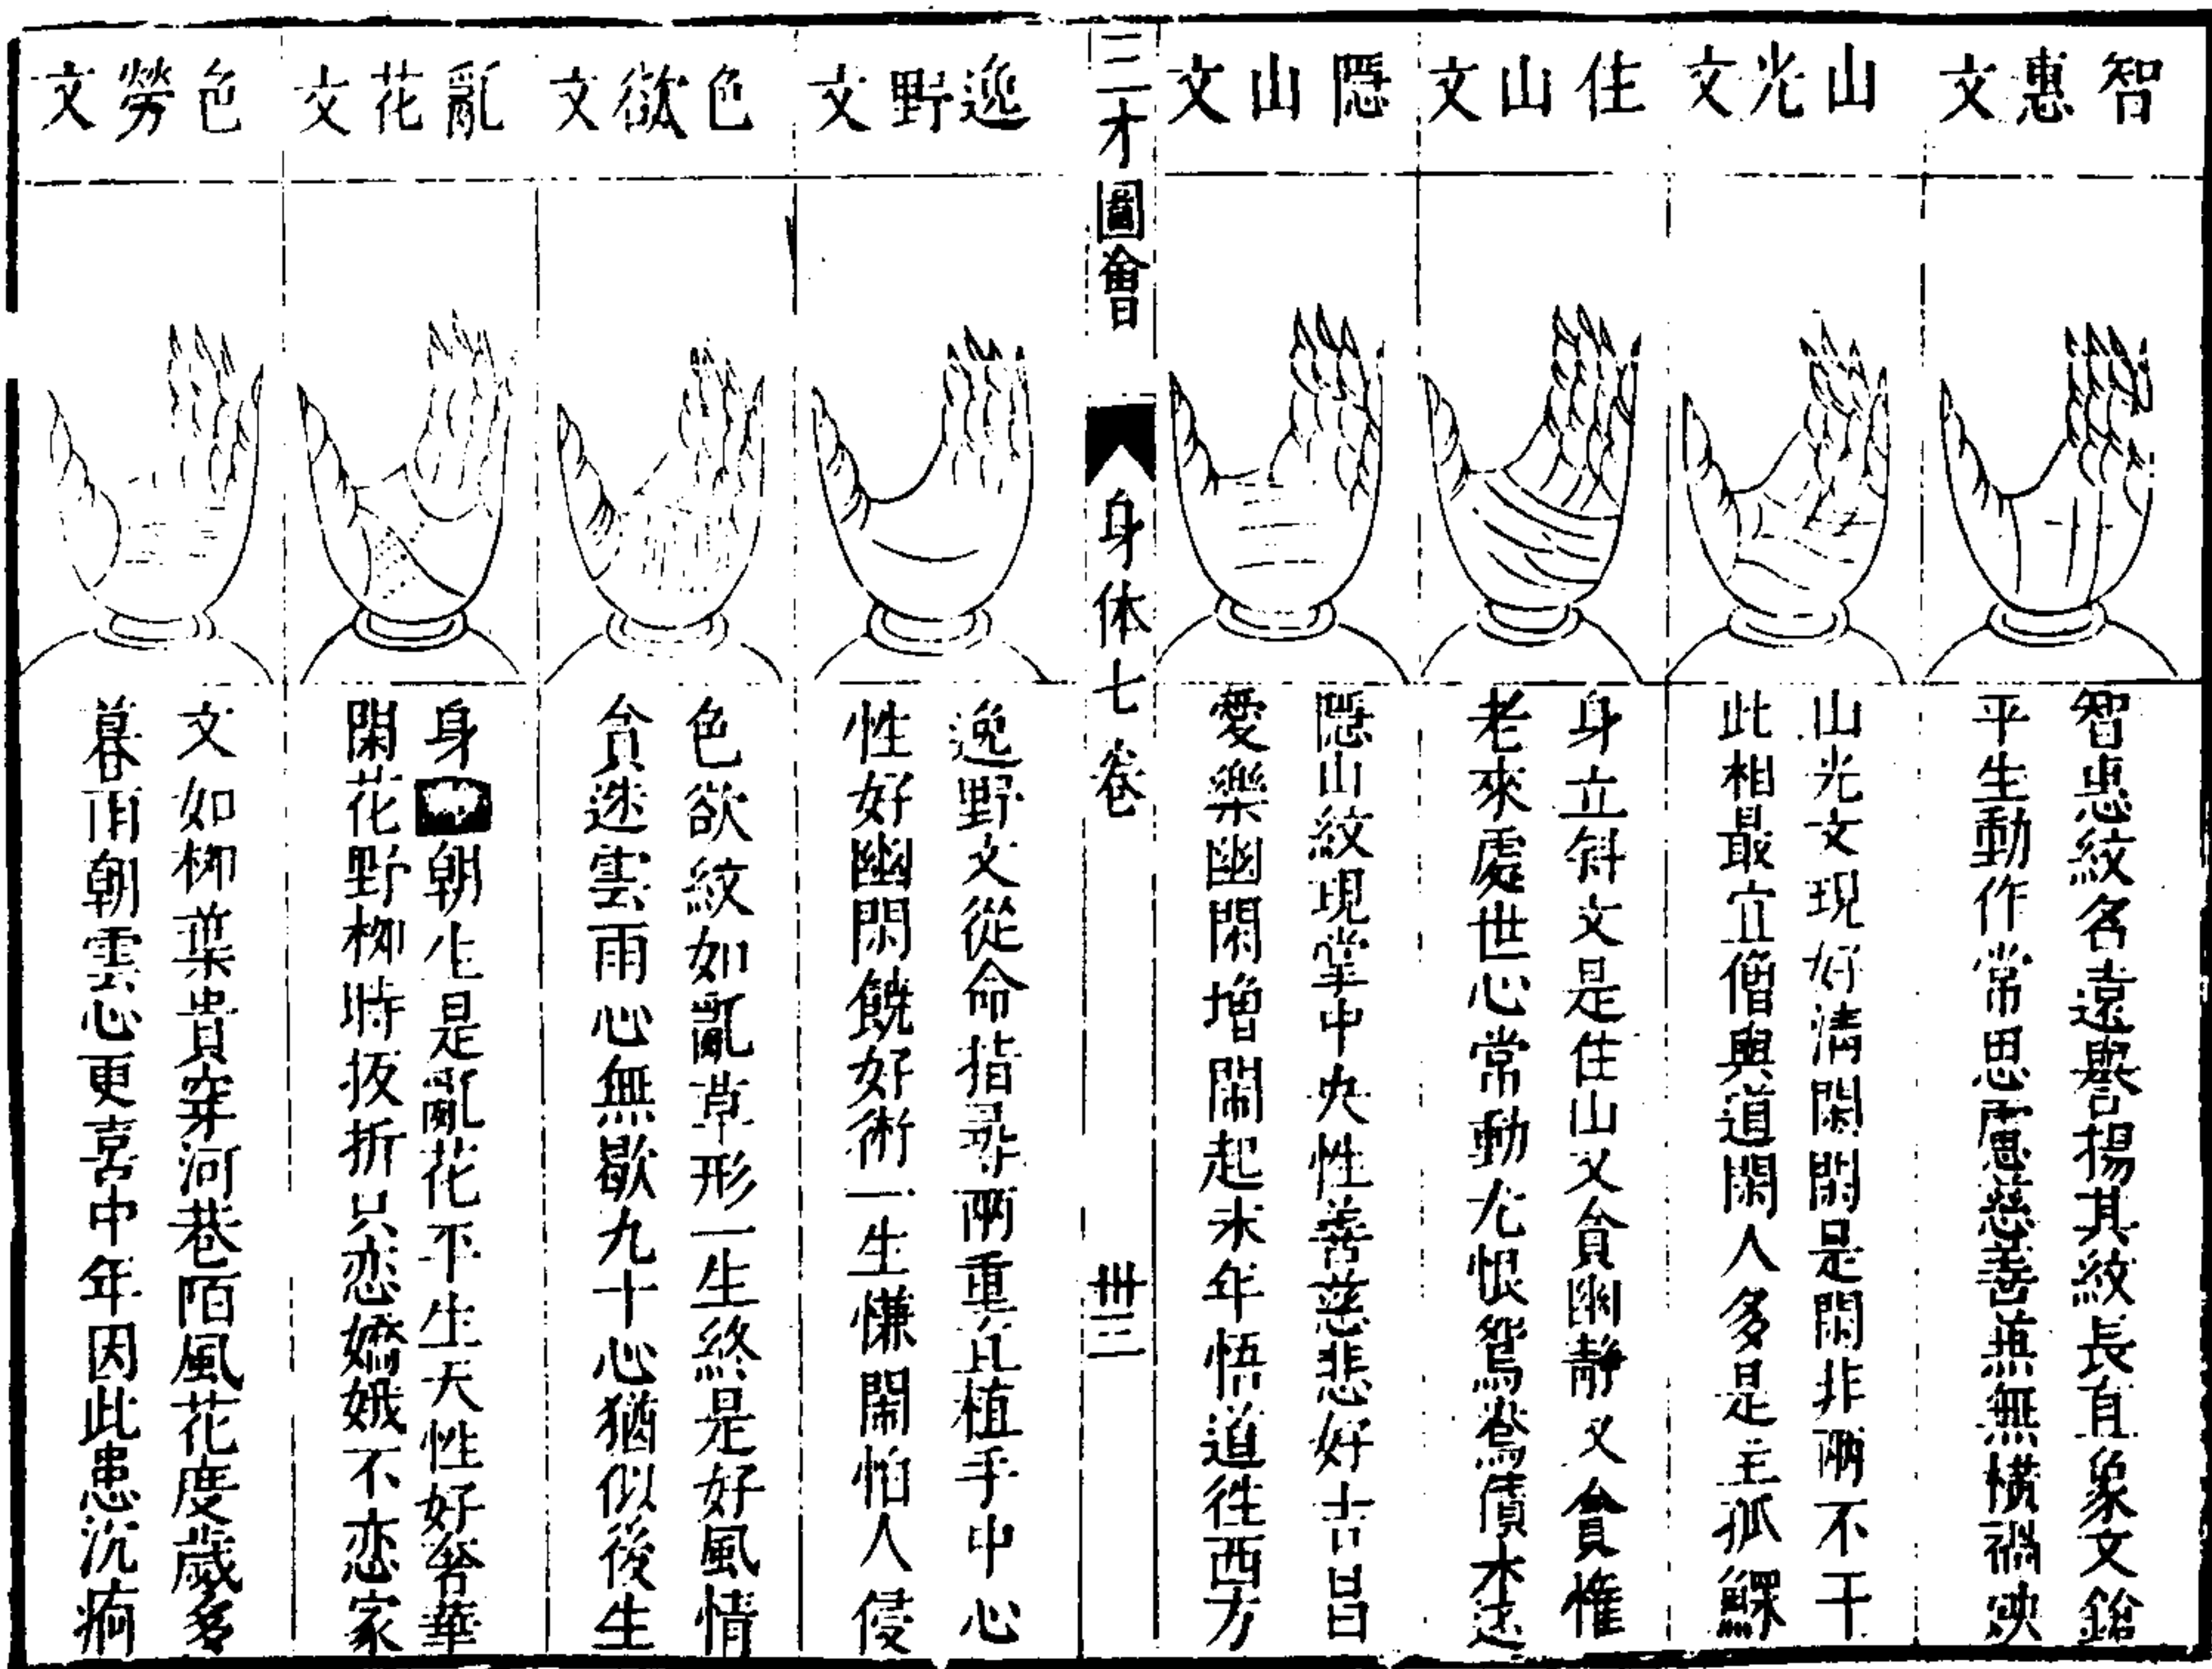 智惠文
智惠紋名遠譽揚其紋長直象文鎗
平生動作常思慮慈善兼無橫禍殃
山光文
山光文現好清閑閑是閑非兩不干
此相最宜僧與道閑人多是主孤鰥
住山文
身立斜文是住山又貪幽靜又貪懽
老來處世心常動尤恨鴛鴦債未还
隱山文
隱山紋現掌中央性善慈悲好吉昌
愛樂幽閑增鬧起末年悟道往西方
三才圖會
身体七卷
卅三
逸野文
逸野文從命指尋兩重直植手中心
性好幽閑饒好術一生慊鬧怕人侵
色欲文
色欲紋如亂草形一生終是好風情
貪迷雲雨心無歇九十心猶似後生
亂花文
身朝生是亂花平生天性好奢華
閑花野柳時扳折只恋嬌娥不恋家
色勞文
文如柳葉貴穿河巷陌風花度歲多
暮雨朝雲心更喜中年因此患沉痾